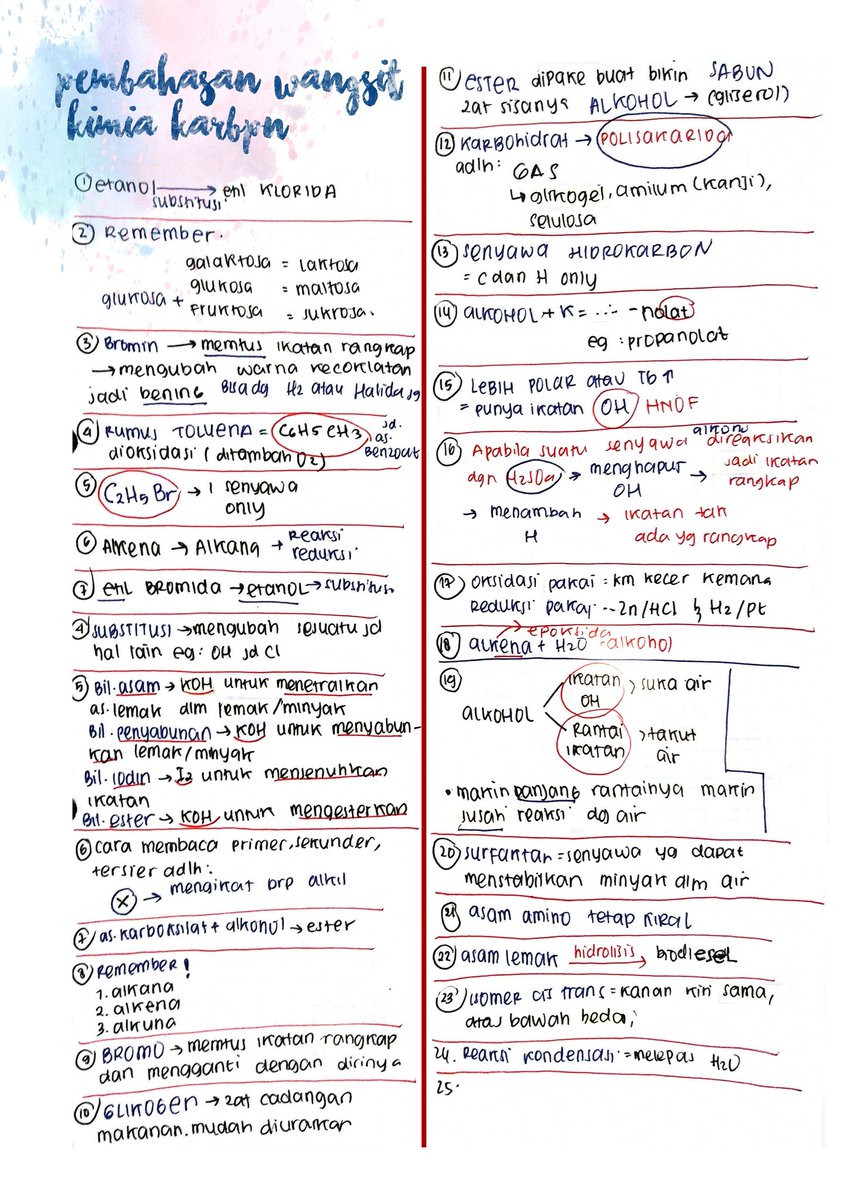 pembahasan wangsit
kimia karbon
① etanol → etil KLORIDA
substitusi
② Remember.
galaktosa = laktosa
glukosa = maltosa
glukosa +
fruktosa = sukrosa.
③ Bromin → memtus ikatan rangkap
→ mengubah warna kecoklatan
jadi bening Bisa dg H2 atau Halida jg
④ Rumus TOLUENA = C6H5CH3 jd. as. Benzoat
dioksidasi (ditambah O2)
⑤ C2H5Br → 1 senyawa
only
⑥ Alkena → Alkana → Reaksi
reduksi
⑦ etil BROMIDA → etanol → substitusi
④ SUBSTITUSI → mengubah sesuatu jd
hal lain eg: OH jd Cl
⑤ Bil. asam → KOH untuk menetralkan
as. lemak dlm lemak/minyak
Bil. penyabunan → KOH untuk menyabun-
kan lemak/mnyak
Bil. iodin → I2 untuk menjenuhkan
ikatan
Bil. ester → KOH untuk mengesterkan
⑥ cara membaca primer, sekunder,
tersier adlh:
X → mengikat brp alkil
⑦ as. karboksilat + alkohol → ester
⑧ Remember!
1. alkana
2. alkena
3. alkuna
⑨ BROMO → memtus ikatan rangkap
dan mengganti dengan dirinya
⑩ GLIKOGEN → zat cadangan
makanan. mudah diuraikan
⑪ ESTER dipake buat bikin SABUN
zat sisanya ALKOHOL → (gliserol)
⑫ Karbohidrat → POLISAKARIDA
adlh: GAS
↳ glikogel, amilum (kanji),
selulosa
⑬ senyawa HIDROKARBON
= C dan H only
⑭ ALKOHOL + K = ... - nolat
eg : propanolat
⑮ LEBIH POLAR atau TD ↑
= punya ikatan OH HNOF
alkohol
⑯ Apabila suatu senyawa direaksikan
dgn H2SO4 → menghapus OH → jadi ikatan rangkap
→ menambah H → ikatan tak ada yg rangkap
⑰ Oksidasi pakai = km kecer kemana
Reduksi pakai -- Zn/HCl & H2/Pt
→ epoksida
⑱ alkena + H2O = alkohol
⑲
ALKOHOL
ikatan OH > suka air
Rantai ikatan > takut air
• makin panjang rantainya makin
susah reaksi dg air
⑳ surfaktan = senyawa yg dapat
menstabilkan minyak dlm air
㉑ asam amino tetap KIRAL
㉒ asam lemak hidrolisis → biodiesel
㉓ isomer cis trans = kanan kiri sama,
atas bawah beda;
24. Reaksi kondensasi = melepas H2O
25.